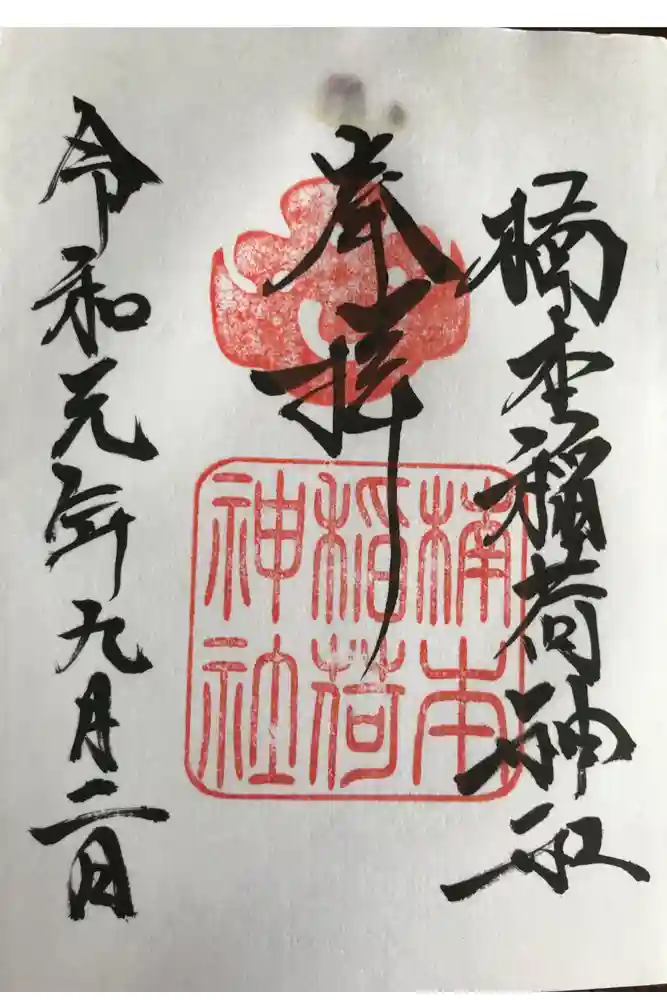 楠本稲荷神社
奉拝
楠本
稲荷
神社
令和元年九月二日